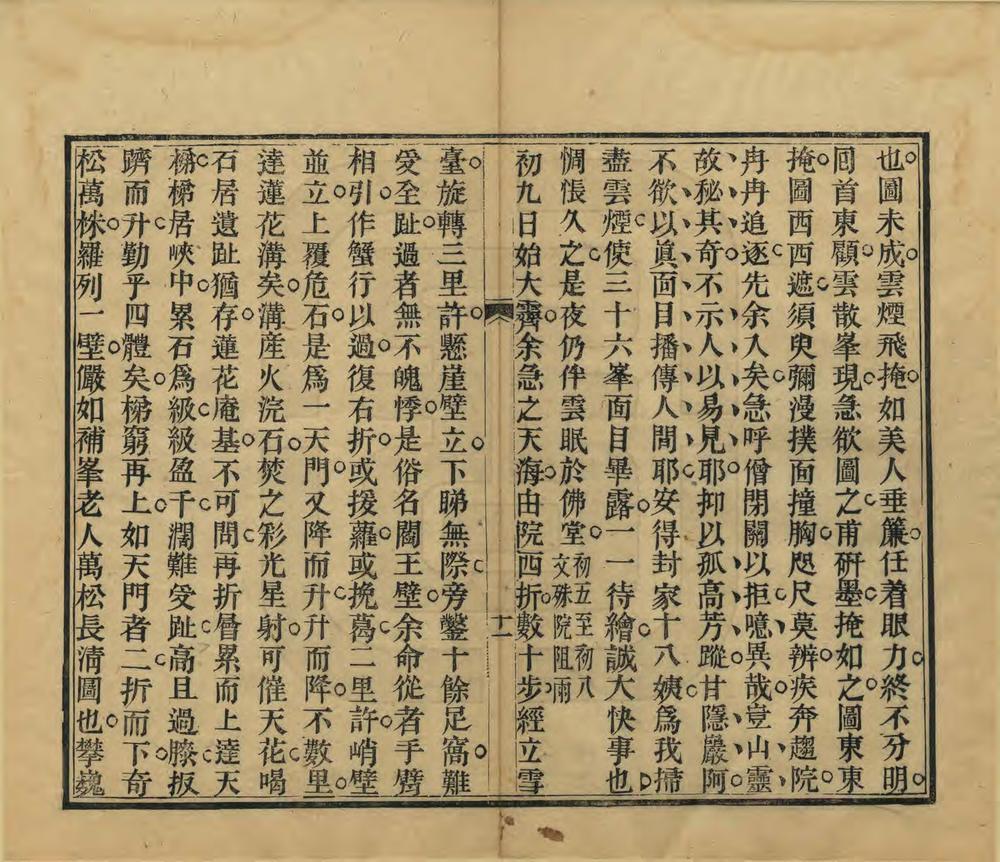 也圖未成雲煙飛掩如美人垂簾任着眼力終不分明
囘首東顧雲散峯現急欲圖之甫硏墨掩如之圖東東
掩圖西西遮須臾彌漫撲面撞胸咫尺莫辨疾奔趨院
冉冉追逐先余入矣急呼僧閉關以拒噫異哉豈山靈
故秘其奇不示人以易見耶抑以孤高芳蹤甘隱巖阿
不欲以眞面目播傳人間耶安得封家十八姨爲我掃
盡雲煙使三十六峯面目畢露一一待繪誠大快事也
惆悵久之是夜仍伴雲眠於佛堂初五至初八
文殊院阻雨
初九日始大霽余急之天海由院西折數十步經立雪
十一
臺旋轉三里許懸崖壁立下睇無際旁鑿十餘足窩難
爰全趾過者無不魄悸是俗名閻王壁余命從者手臂
相引作蟹行以過復右折或援蘿或挽葛二里許峭壁
並立上覆危石是爲一天門又降而升升而降不數里
達蓮花溝矣溝産火浣石焚之彩光星射可催天花喝
石居遺趾猶存蓮花庵基不可問再折層累而上達天
梯梯居峽中累石爲級級盈千濶難爰趾高且過膝扳
躋而升勤乎四體矣梯窮再上如天門者二折而下奇
松萬株羅列一壁儼如補峯老人萬松長淸圖也攀巍